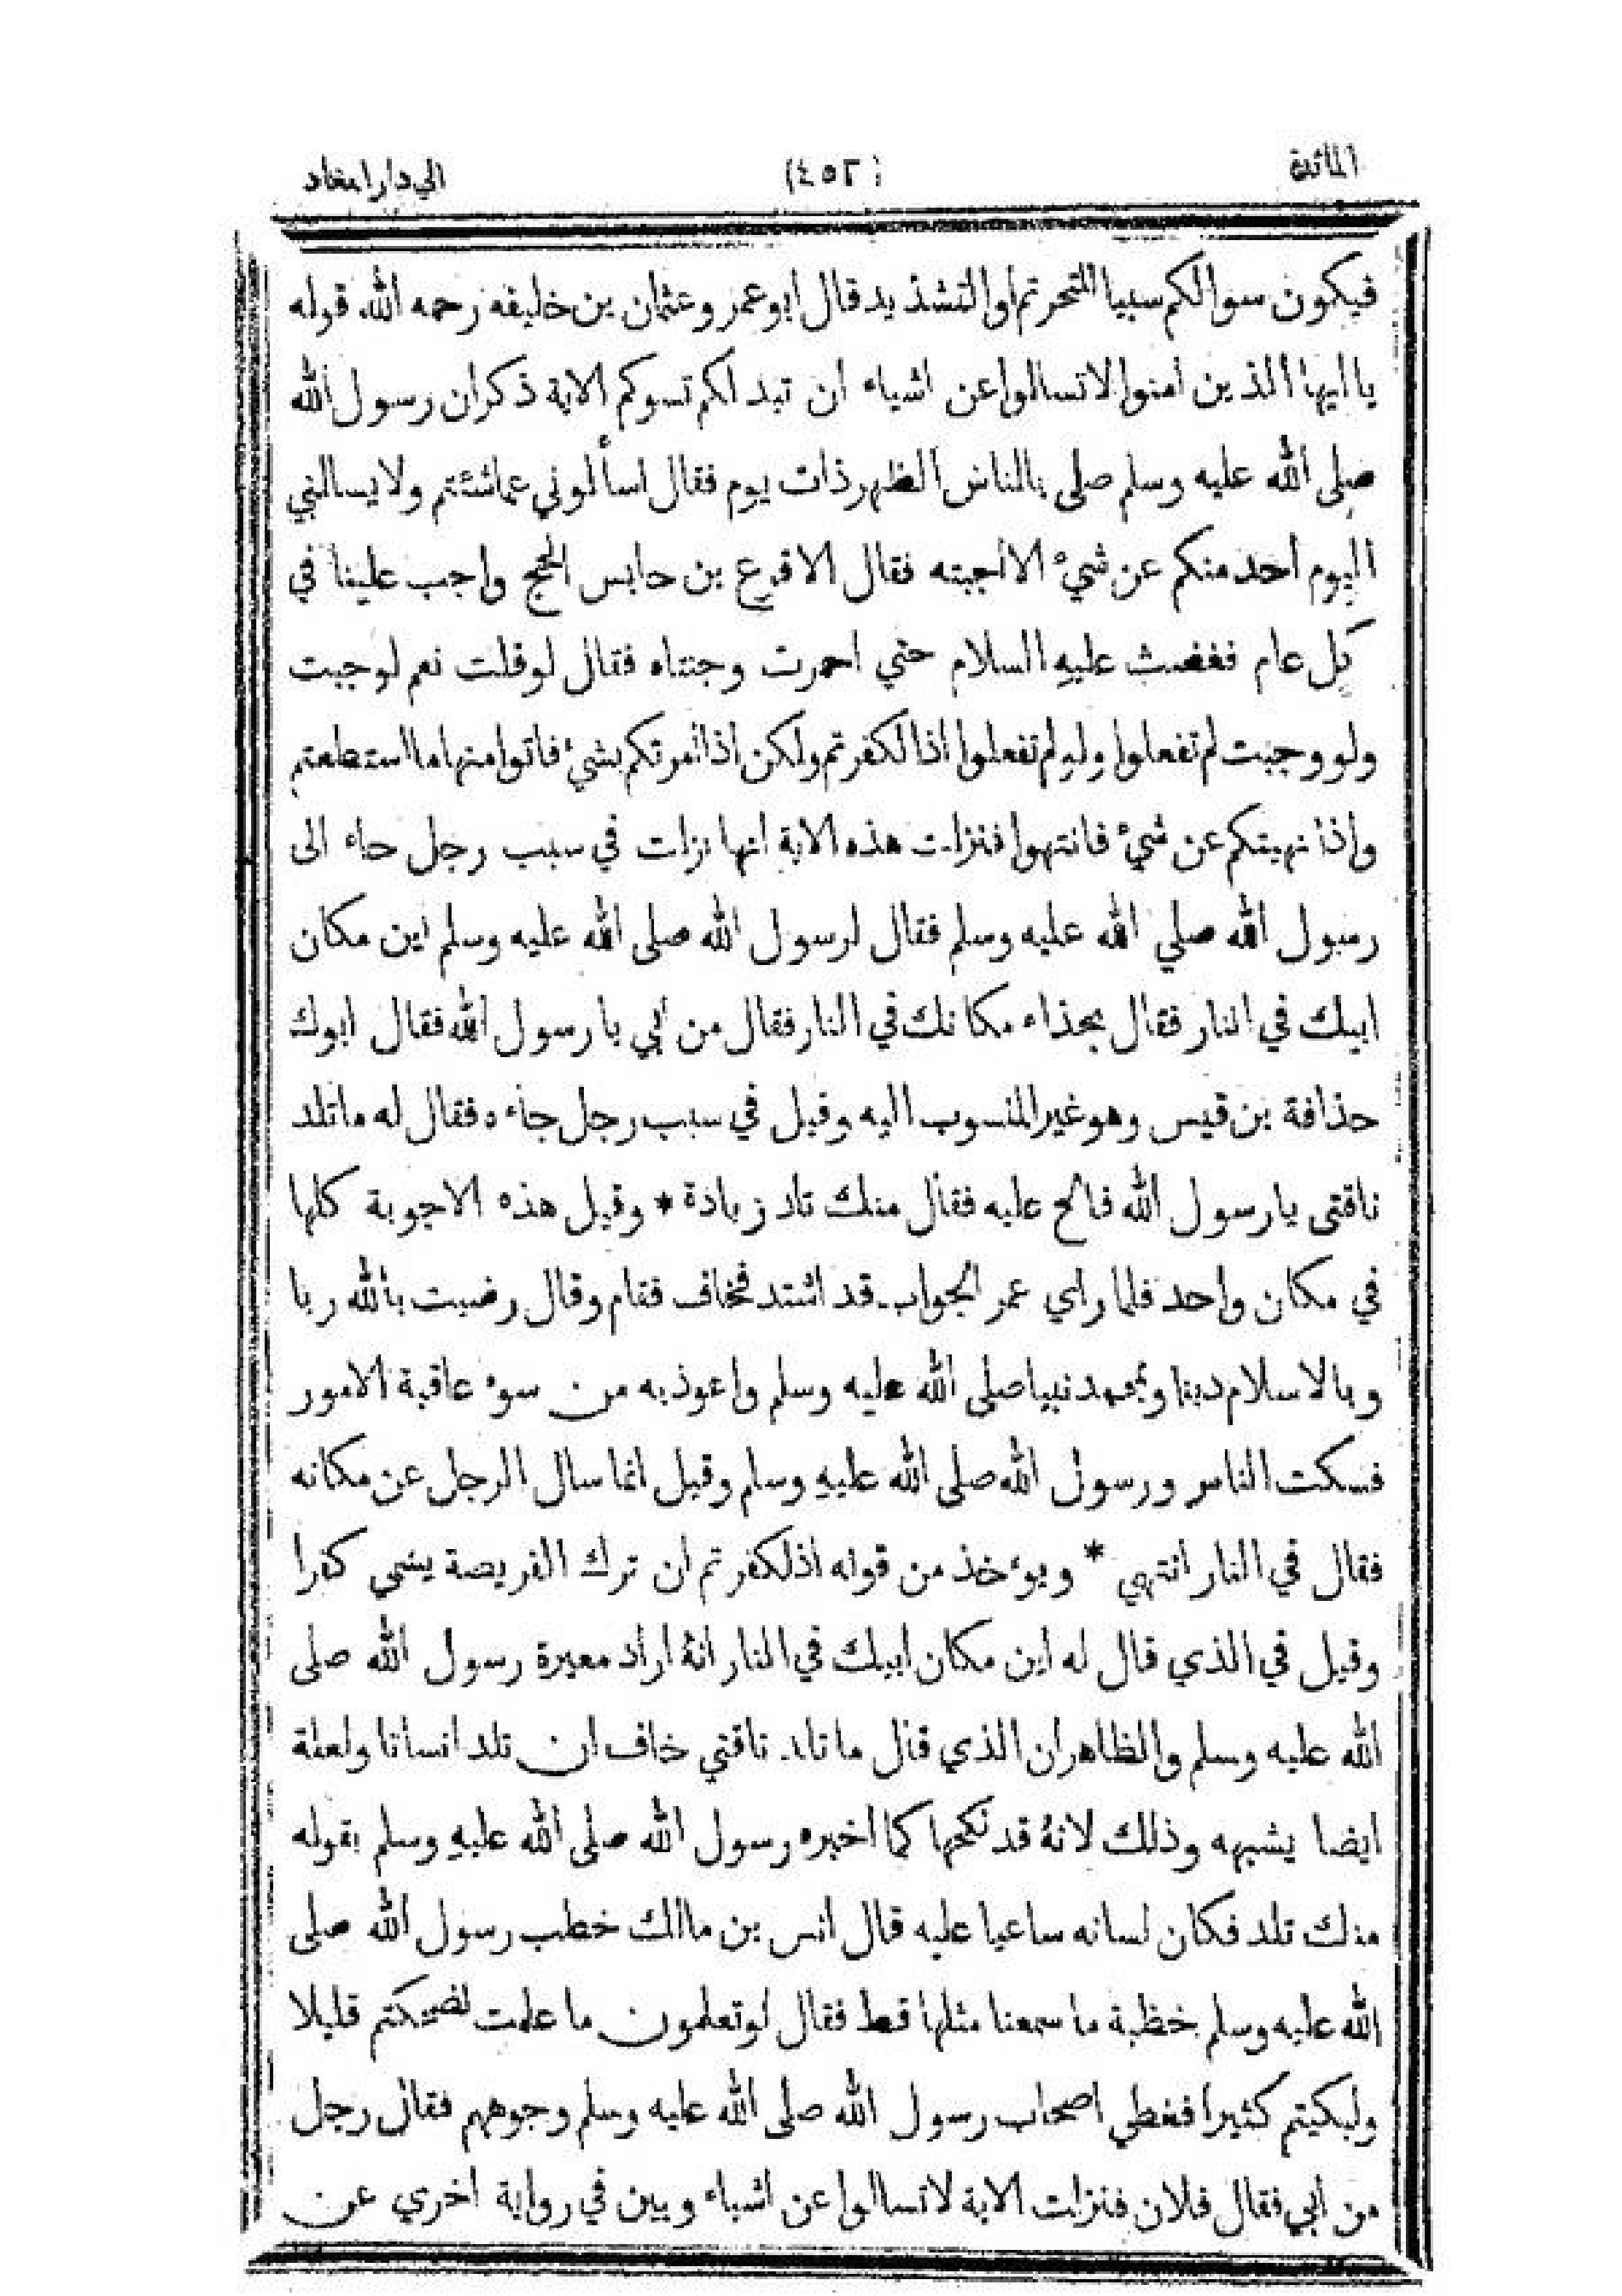 المائدة (٤٥٢) الي دار المعاد
فيكون سوالكم سببا للتحرتم او التشذيد قال ابو عمر وعثمان بن خليفه رحمه الله قوله
يا ايها الذين امنوا لا تسالوا عن اشياء ان تبد لكم تسوكم الاية ذكر ان رسول الله
صلى الله عليه وسلم صلى بالناس الظهر ذات يوم فقال اسألوني عما شئتم ولا يسالني
اليوم احد منكم عن شيء الا اجبته فقال الاقرع بن حابس الحج واجب علينا في
كل عام فغضب عليه السلام حتي احمرت وجنتاه فقال لو قلت نعم لوجبت
ولو وجبت لم تفعلوا ولو لم تفعلوا اذا لكفرتم ولكن اذا امرتكم بشيء فاتوا منها ما استطعتم
واذا نهيتكم عن شيء فانتهوا فنزلت هذه الاية انها نزلت في سبب رجل جاء الى
رسول الله صلي الله عليه وسلم فقال لرسول الله صلى الله عليه وسلم اين مكان
ابيك في النار فقال بحذاء مكانك في النار فقال من أبي يا رسول الله فقال ابوك
حذافة بن قيس وهو غير المنسوب اليه وقيل في سبب رجل جاءه فقال له ما تلد
ناقتى يا رسول الله فالح عليه فقال منك تلد زيادة * وقيل هذه الاجوبة كلها
في مكان واحد فلما راي عمر الجواب قد اشتد فخاف فقام وقال رضيت بالله ربا
وبالاسلام دينا وبمحمد نبيا صلى الله عليه وسلم واعوذ به من سوء عاقبة الامور
فسكت الناس ورسول الله صلى الله عليه وسلم وقيل انما سال الرجل عن مكانه
فقال في النار انتهي * ويؤخذ من قوله اذ لكفرتم ان ترك الفريضة يسمي كفرا
وقيل في الذي قال له اين مكان ابيك في النار انه اراد معيرة رسول الله صلى
الله عليه وسلم والظاهر ان الذي قال ما تلد ناقتي خاف ان تلد انسانا ولعله
ايضا يشبهه وذلك لانه قد نكحها كما اخبره رسول الله صلى الله عليه وسلم بقوله
منك تلد فكان لسانه ساعيا عليه قال انس بن مالك خطب رسول الله صلى
الله عليه وسلم خطبة ما سمعنا مثلها قط فقال لو تعلمون ما علمت لضحكتم قليلا
ولبكيتم كثيرا فغطي اصحاب رسول الله صلى الله عليه وسلم وجوههم فقال رجل
من ابي فقال فلان فنزلت الاية لا تسالوا عن اشياء وبين في رواية اخري عن